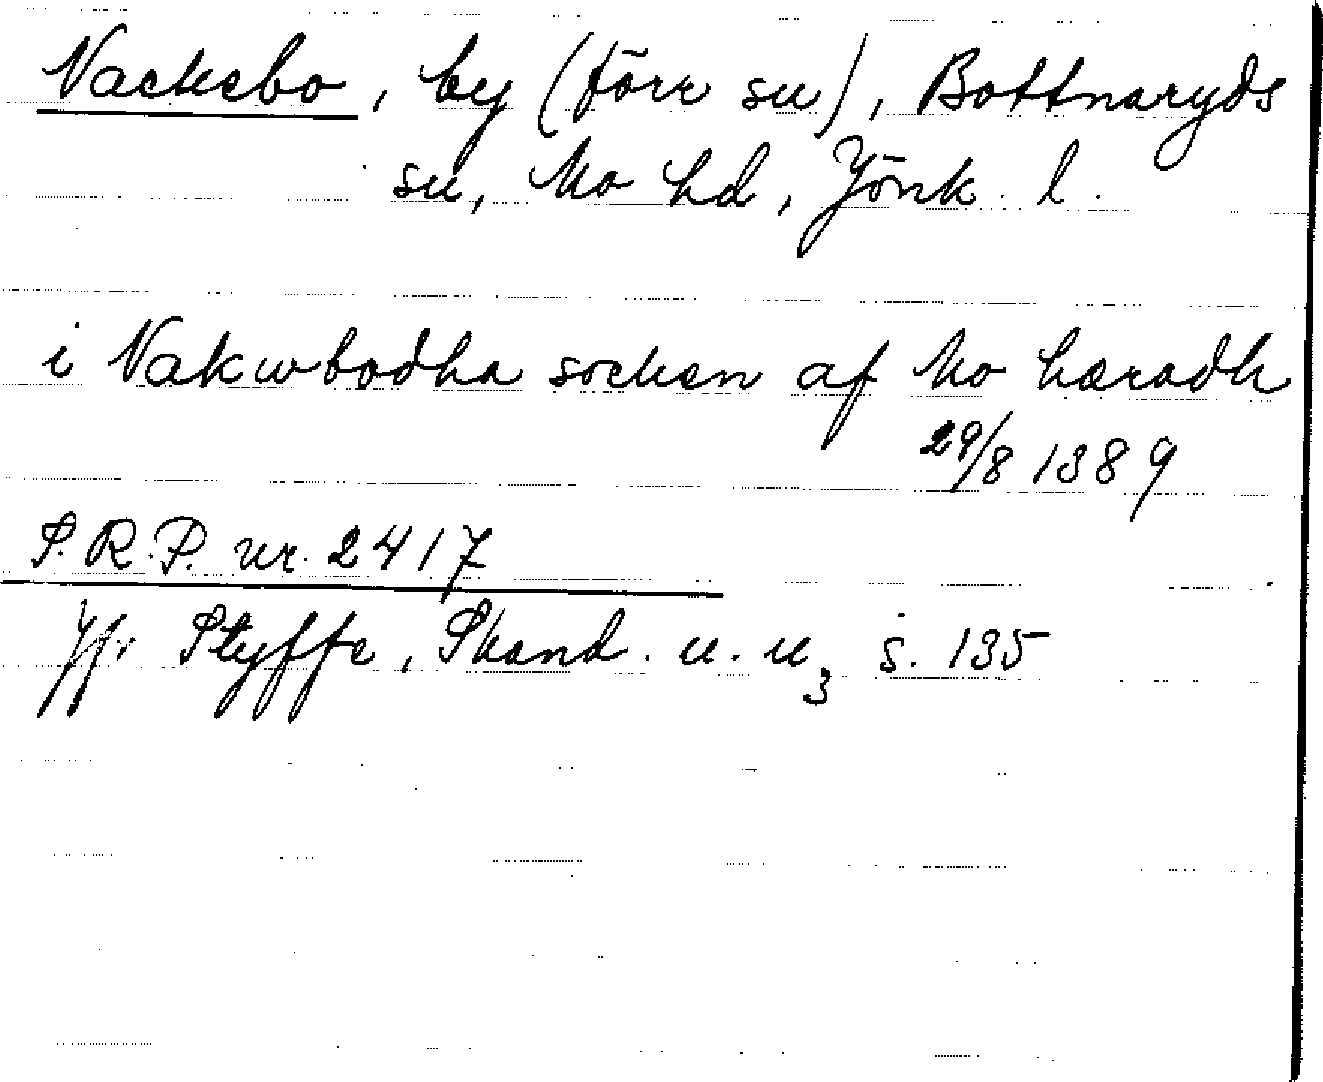 Vackebo, by (förr sn), Bottnaryds
sn, Mo hd, Jönk. l.
i Vakwbodha socken af Mo hæradh
29/8 1389
S.R.P. nr. 2417
Jfr Styffe, Skand. u. u₃ s. 135